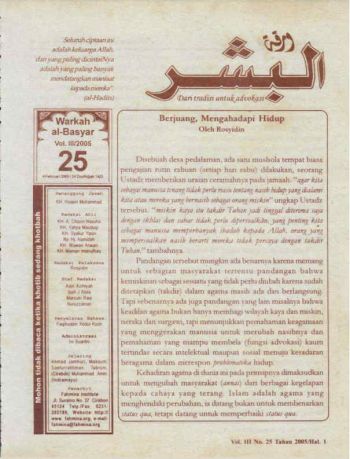 Seluruh ciptaan ini
adalah keluarga Allah,
dan yang paling dicintaiNya
adalah yang paling banyak
mendatangkan manfaat
kepada mereka"
(al-Hadits)
ورقة
البشر
Dari tradisi untuk advokasi
Warkah
al-Basyar
Vol. III/2005
25
Penanggung Jawab:
KH. Husein Muhammad
Redaksi Ahli:
Marzuki Wahid
Redaksi Pelaksana
Rosyidin
Staf Redaksi
Marzuki Rais
Nuruzzaman
Penyelaras Bahasa
Faqihuddin Abdul Kodir
Penerbit
Fahmina Institute
Jl. Suratno No. 37 Cirebon
45124 Telp./Fax. 0231-
203789, Website http://
www.fahmina.org, e-mail
fahmina@fahmina.org
Mohon tidak dibaca ketika khotib sedang khotbah
Berjuang, Mengahadapi Hidup
Oleh Rosyidin
Disebuah desa pedalaman, ada satu mushola tempat biasa
pengajian rutin rabuan (setiap hari rabu) dilakukan, seorang
Ustadz memberikan uraian ceramahnya pada jamaah. "agar kita
sebagai manusia tenang tidak perlu risau tentang nasib hidup yang dialami
kita atau mereka yang bernasib sebagai orang miskin" ungkap Ustadz
tersebut. "miskin kaya itu takdir Tuhan jadi tinggal diterima saja
dengan ikhlas dan sabar tidak perlu dipersoalkan, yang penting kita
sebagai manusia memperbanyak ibadah kepada Allah, orang yang
mempersoalkan nasib berarti mereka tidak percaya dengan takdir
Tuhan," tambahnya.
Pandangan tersebut mungkin ada benarnya karena memang
untuk sebagian masyarakat tertentu pandangan bahwa
kemiskinan sebagai sesuatu yang tidak perlu diubah karena sudah
ditetapkan (takdir) dalam agama masih ada dan berlangsung.
Tapi sebenarnya ada juga pandangan yang lain misalnya bahwa
keadilan agama bukan hanya membagi wilayah kaya dan miskin,
neraka dan surgawi, tapi menunjukkan pemahaman keagamaan
yang menggerakan manusia untuk merubah nasibnya dan
pemahaman yang mampu membela (fungsi advokasi) kaum
tertindas secara intelektual maupun sosial menuju kesadaran
beragama dalam merespon problematika hidup.
Kehadiran agama di dunia ini pada prinsipnya dimaksudkan
untuk mengubah masyarakat (umat) dari berbagai kegelapan
kepada cahaya yang terang. Islam adalah agama yang
menghendaki perubahan, ia datang bukan untuk membenarkan
status quo, tetapi datang untuk memperbaiki status quo.
Vol. III No. 25 Tahun 2005/Hal. 1